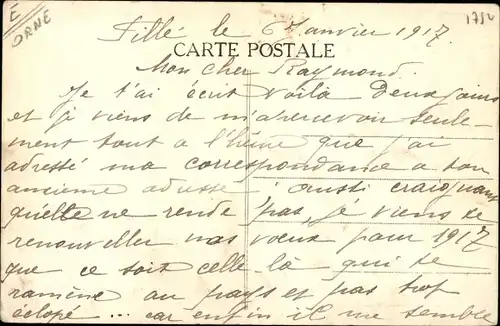 E
ORNE
1752
Fillé le 6 Janvier 1917.
CARTE POSTALE
Mon cher Raymond.
Je t'ai écrit voilà deux jours
et je viens de m'apercevoir seule-
ment tout à l'heure que j'ai
adressé ma correspondance a ton
ancienne adresse ; aussi craignant
qu'elle ne rende pas, je viens de
renouveller mes voeux pour 1917
que ce soit celle là qui te
ramène au pays et pas trop
éclopé ... car enfin il me semble